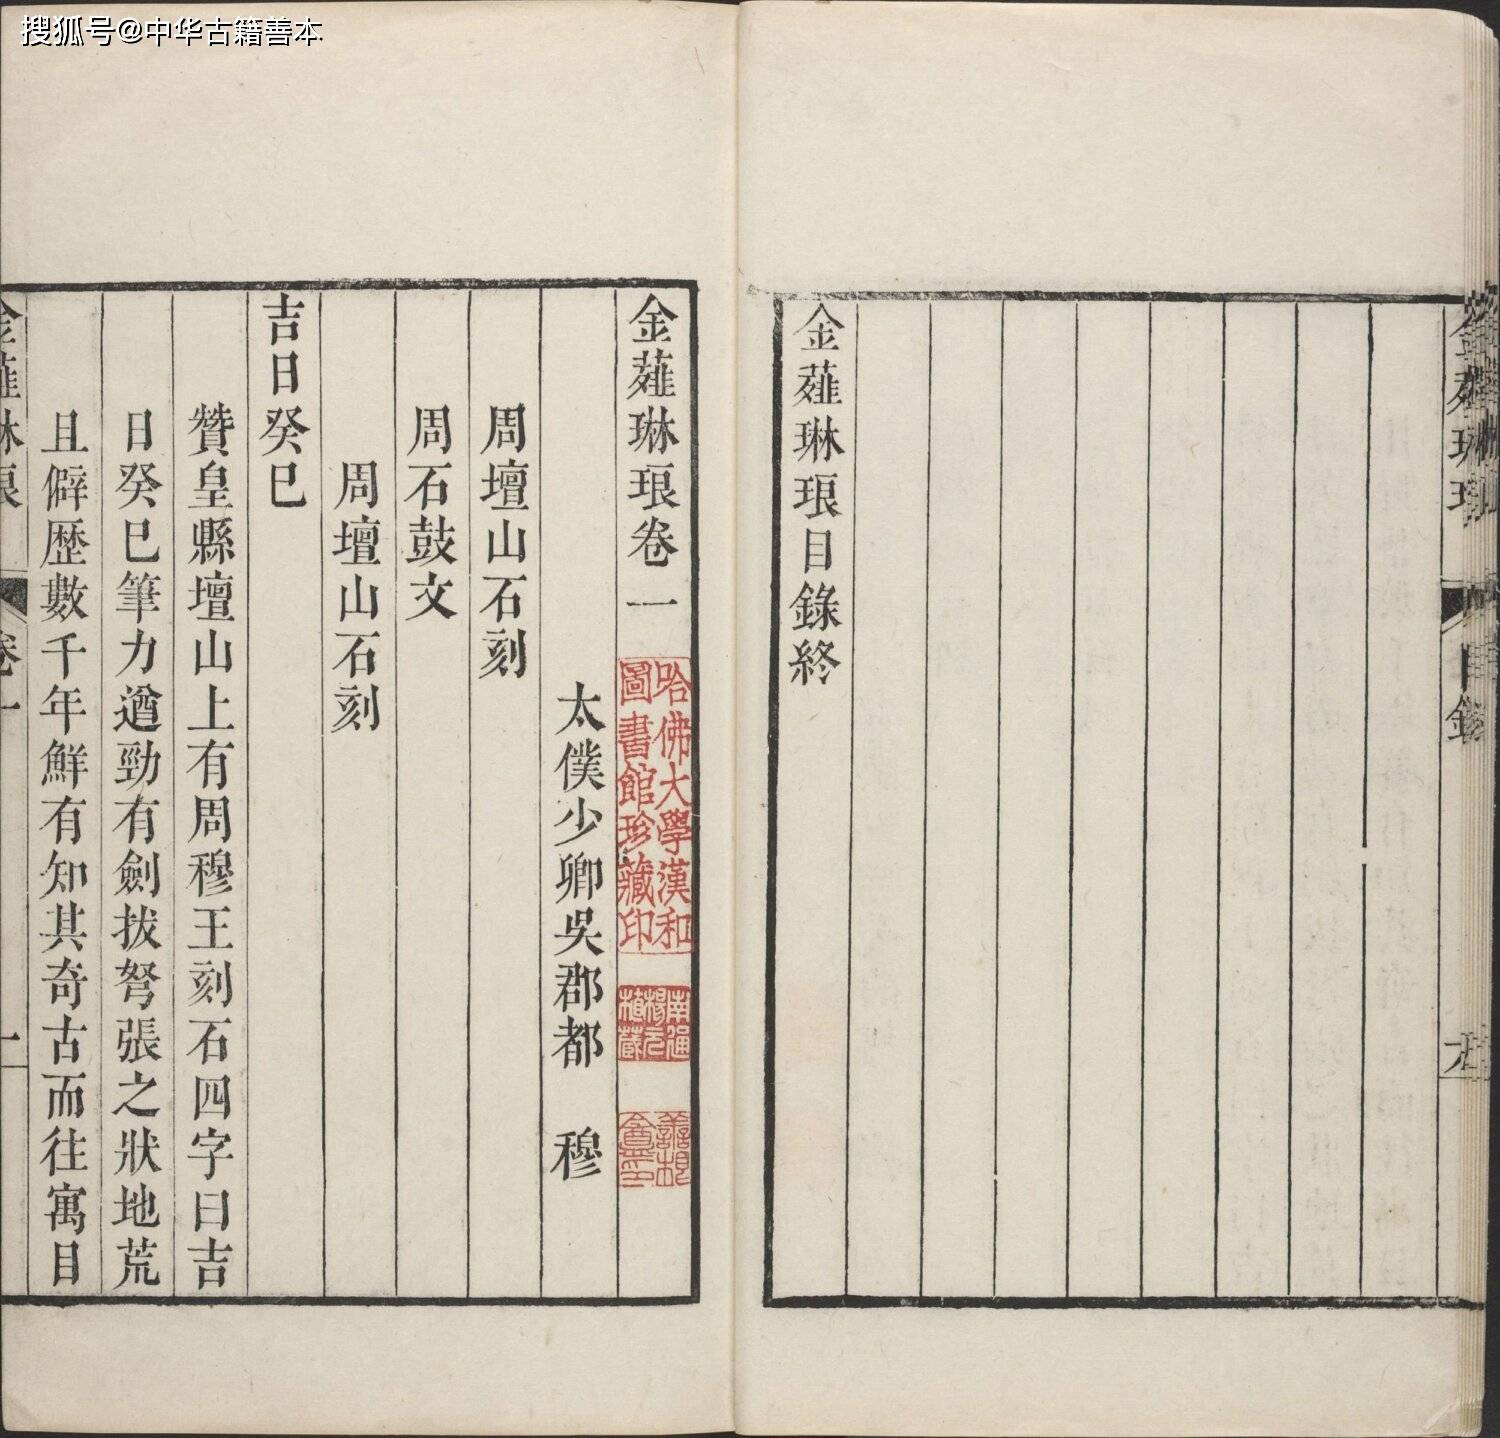 搜狐号@中华古籍善本
金薤琳琅
目錄
九
金薤琳琅目錄終
金薤琳琅卷一
哈佛大學漢和
圖書館珍藏印
南通
楊元
植藏
太僕少卿吳郡都　穆
周壇山石刻
周石鼓文
周壇山石刻
吉日癸巳
贊皇縣壇山上有周穆王刻石四字曰吉
日癸巳筆力遒勁有劍拔弩張之狀地荒
且僻歷數千年鮮有知其奇古而往寓目
金薤琳琅
卷一
一